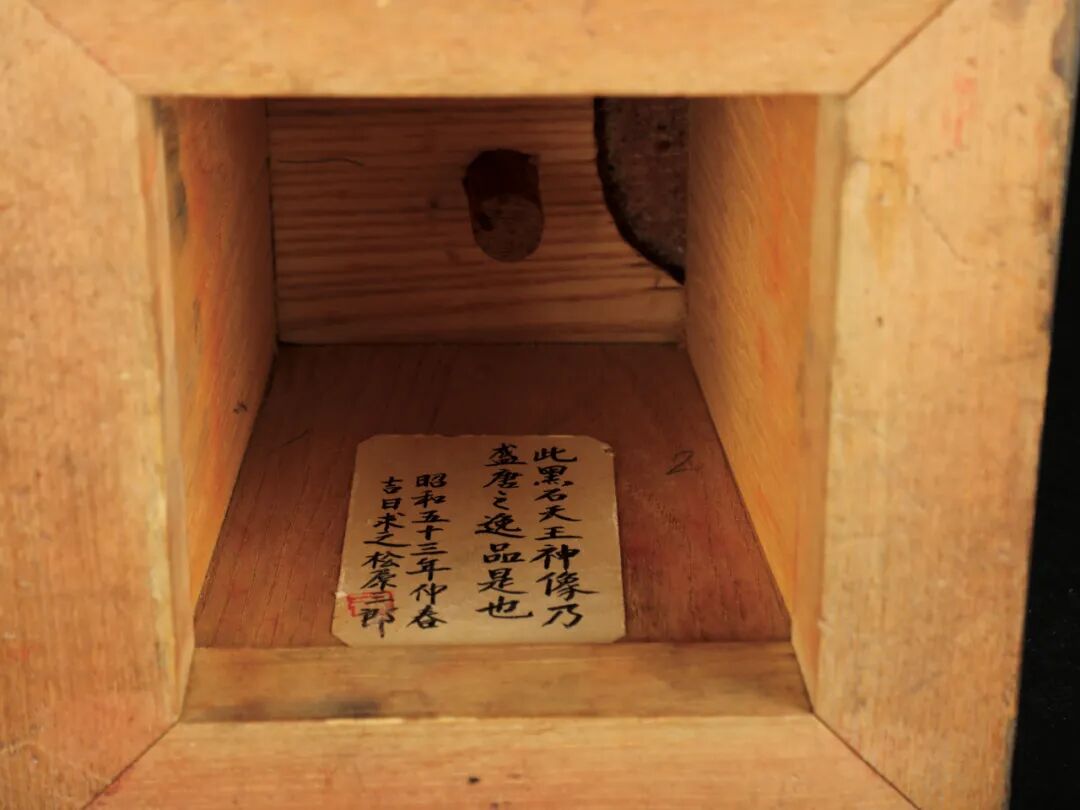 此黑石天王神像乃
盛唐之逸品是也
昭和五十三年仲春
吉日求之松原三郎
2